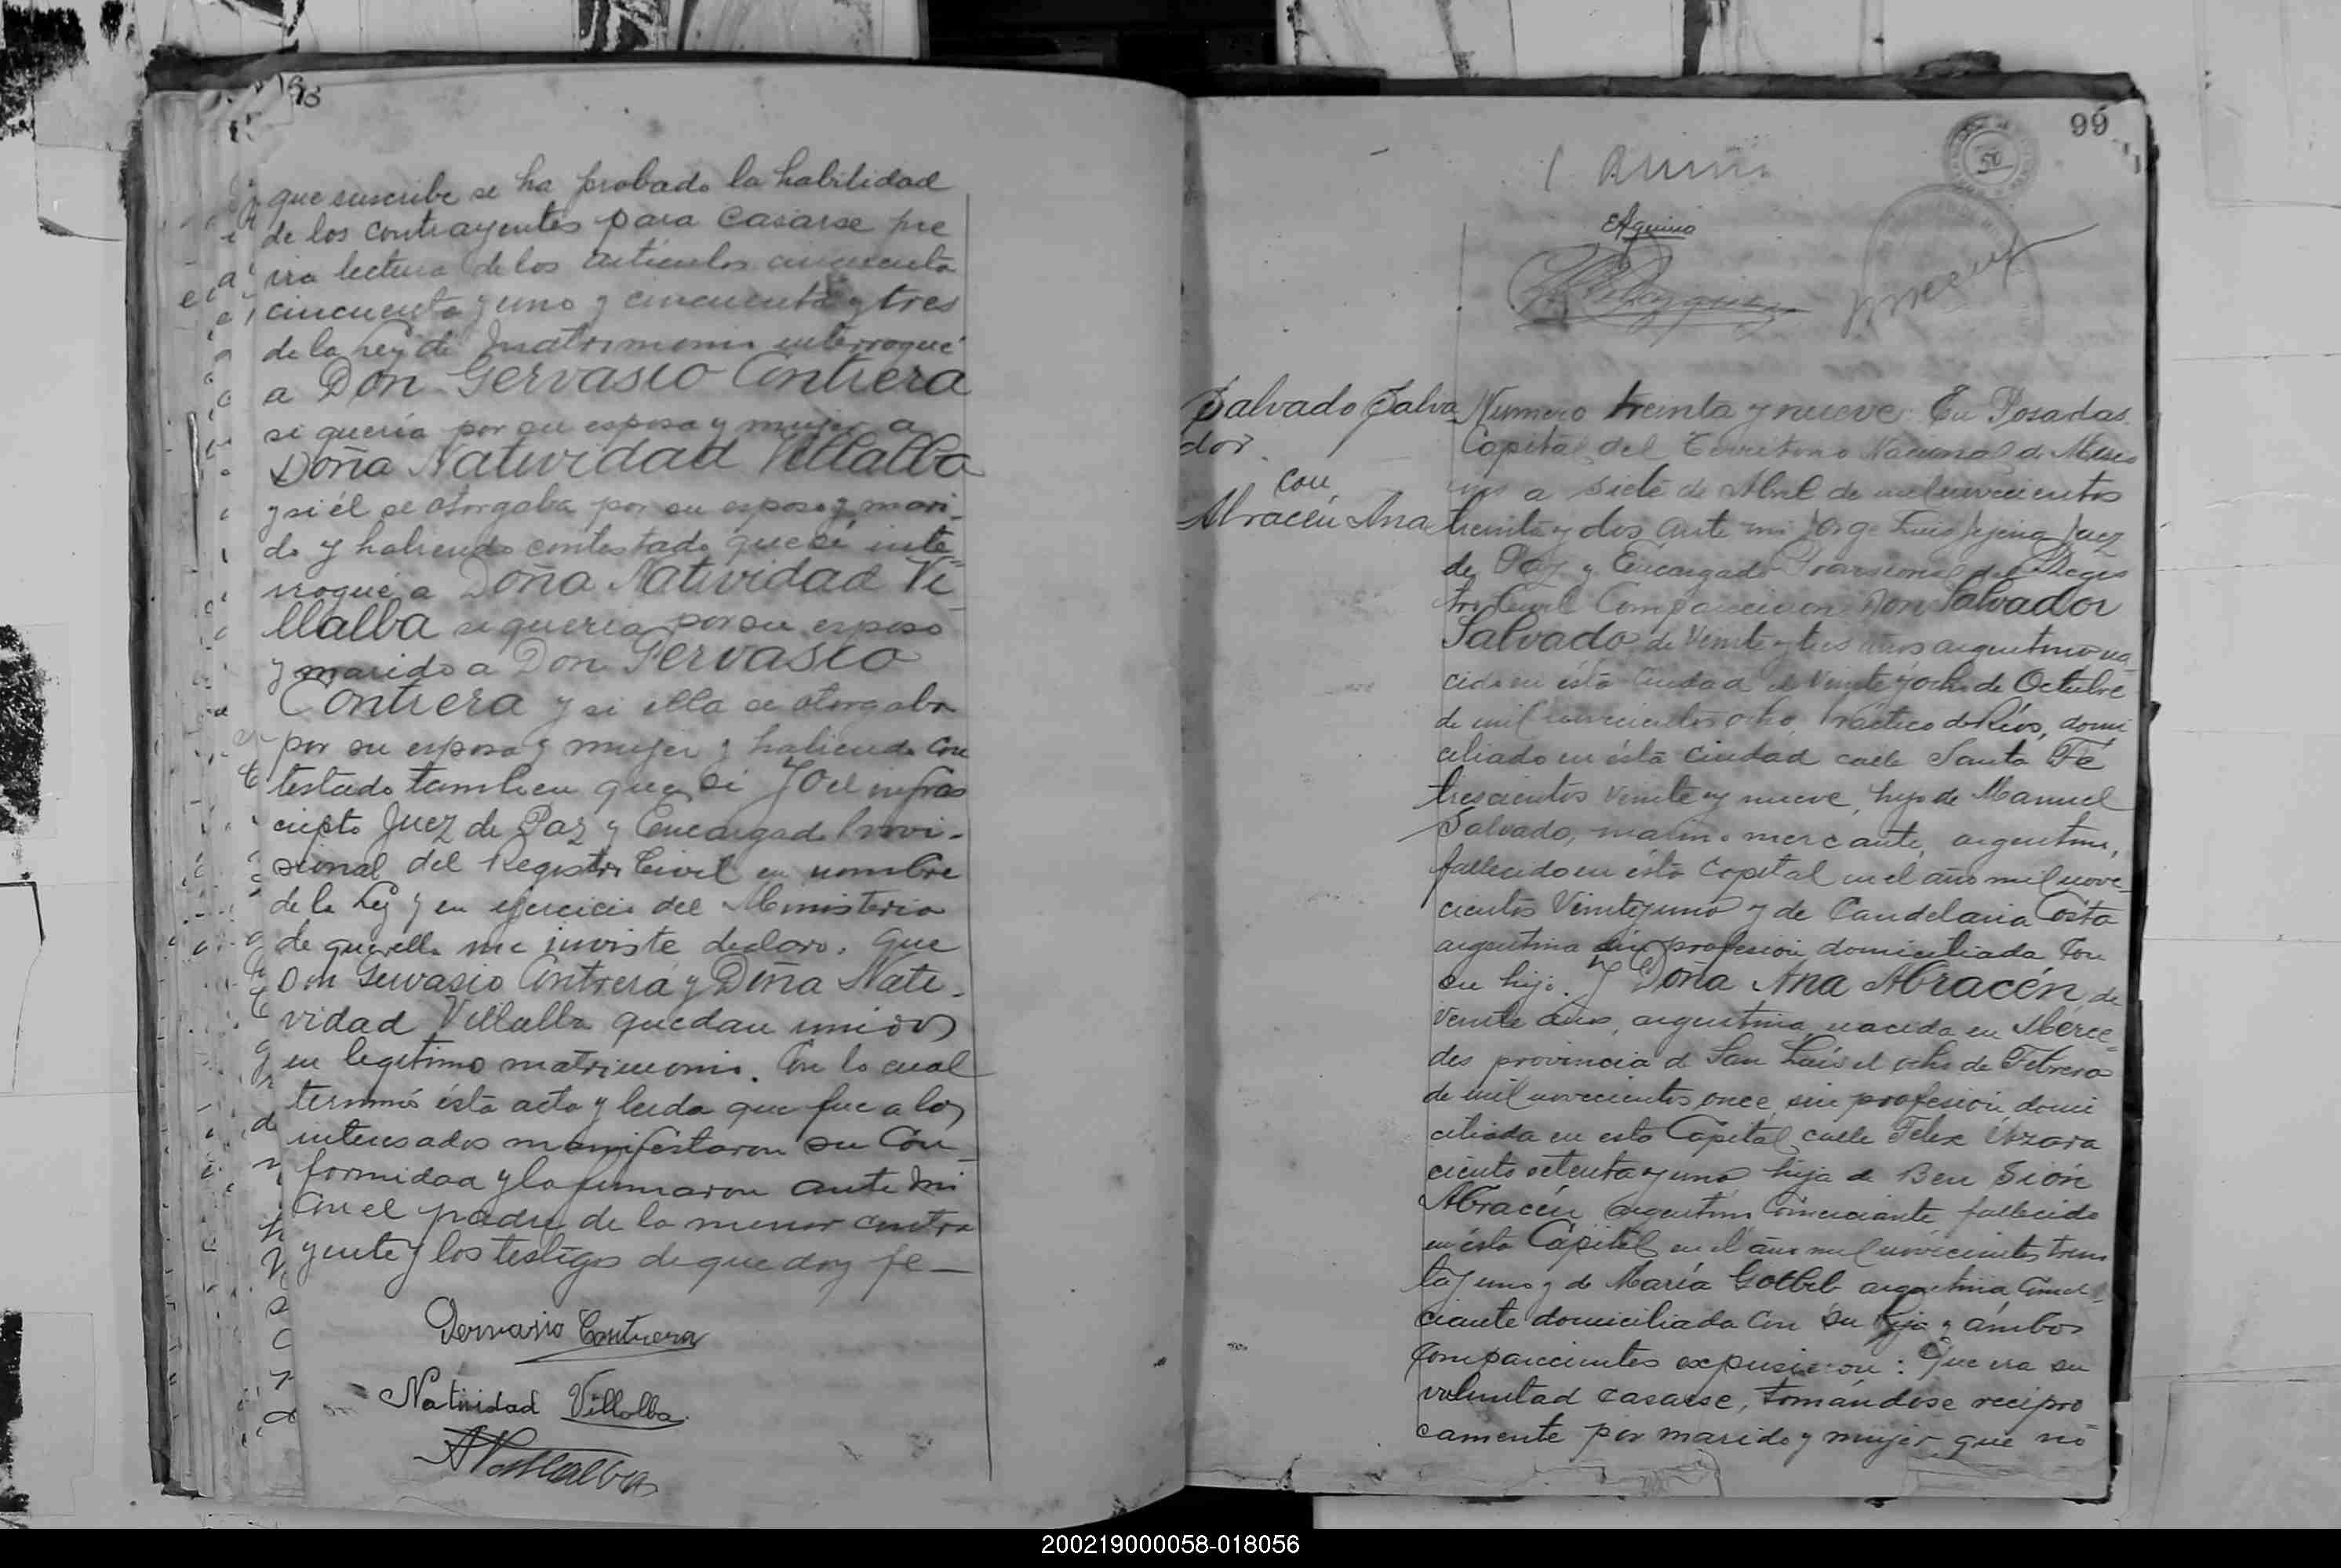 98
que suscribe se ha probado la habilidad
de los contrayentes para casarse pre
via lectura de los artículos cincuenta
cincuenta y uno y cincuenta y tres
de la Ley de Matrimonio interrogué
a Don Gervasio Contrera
si quería por su esposa y mujer a
Doña Natividad Villalba
y si él se otorgaba por su esposo y mari-
do y habiendo contestado que sí inte-
rrogué a Doña Natividad Vi-
llalba si quería por su esposo
y marido a Don Gervasio
Contrera y si ella se otorgaba
por su esposa y mujer y habiendo con
testado tambien que si Yo el infras
cripto Juez de Paz y Encargado Provi-
sional del Registro Civil en nombre
de la Ley y en ejercicio del Ministerio
de que ella me inviste declaro. Que
Don Gervasio Contrera y Doña Nati-
vidad Villalba quedan unidos
en legítimo matrimonio. Con lo cual
terminó ésta acta y leida que fue a los
interesados manifestaron su Con-
formidad y la firmaron ante mi
Con el padre de la menor contra
yente y los testigos de que doy fe—
Gervasio Contrera
Natividad Villalba
Villalba
99
50
EAquino
Salvado Salva
dor.
con
Abracén Ana
Numero treinta y nueve. En Posadas
Capital del Territorio Nacional de Misio
nes a siete de Abril de mil novecientos
treinta y dos ante mi Jorge Luis Juez
de Paz y Encargado Provisional del Regis
tro Civil Comparecieron Don Salvador
Salvado de Veinte y tres años argentino na-
cido en ésta Ciudad el Veinte y ocho de Octubre
de mil novecientos ocho, Práctico de Ríos, domi
ciliado en ésta ciudad calle Santa Fé
trescientos veinte y nueve, hijo de Manuel
Salvado, marino mercante, argentino,
fallecido en ésta Capital en el año mil nove-
cientos Veinte y uno y de Candelaria Costa
argentina sin profesión domiciliada Con
su hijo. Y Doña Ana Abracén de
Veinte años, argentina, nacida en Merce-
des provincia de San Luis el ocho de Febrero
de mil novecientos once, sin profesión, domi
ciliada en esta Capital calle Felix Azara
ciento setenta y uno hija de Ben Sión
Abracén argentino Comerciante fallecido
en ésta Capital en el año mil novecientos trein
ta y uno y de María Gotbel argentina Comer-
ciante domiciliada Con su hija y ámbos
Comparecientes expusieron: Que era su
voluntad casarse, tomándose recípro
camente por marido y mujer que nó
200219000058-018056